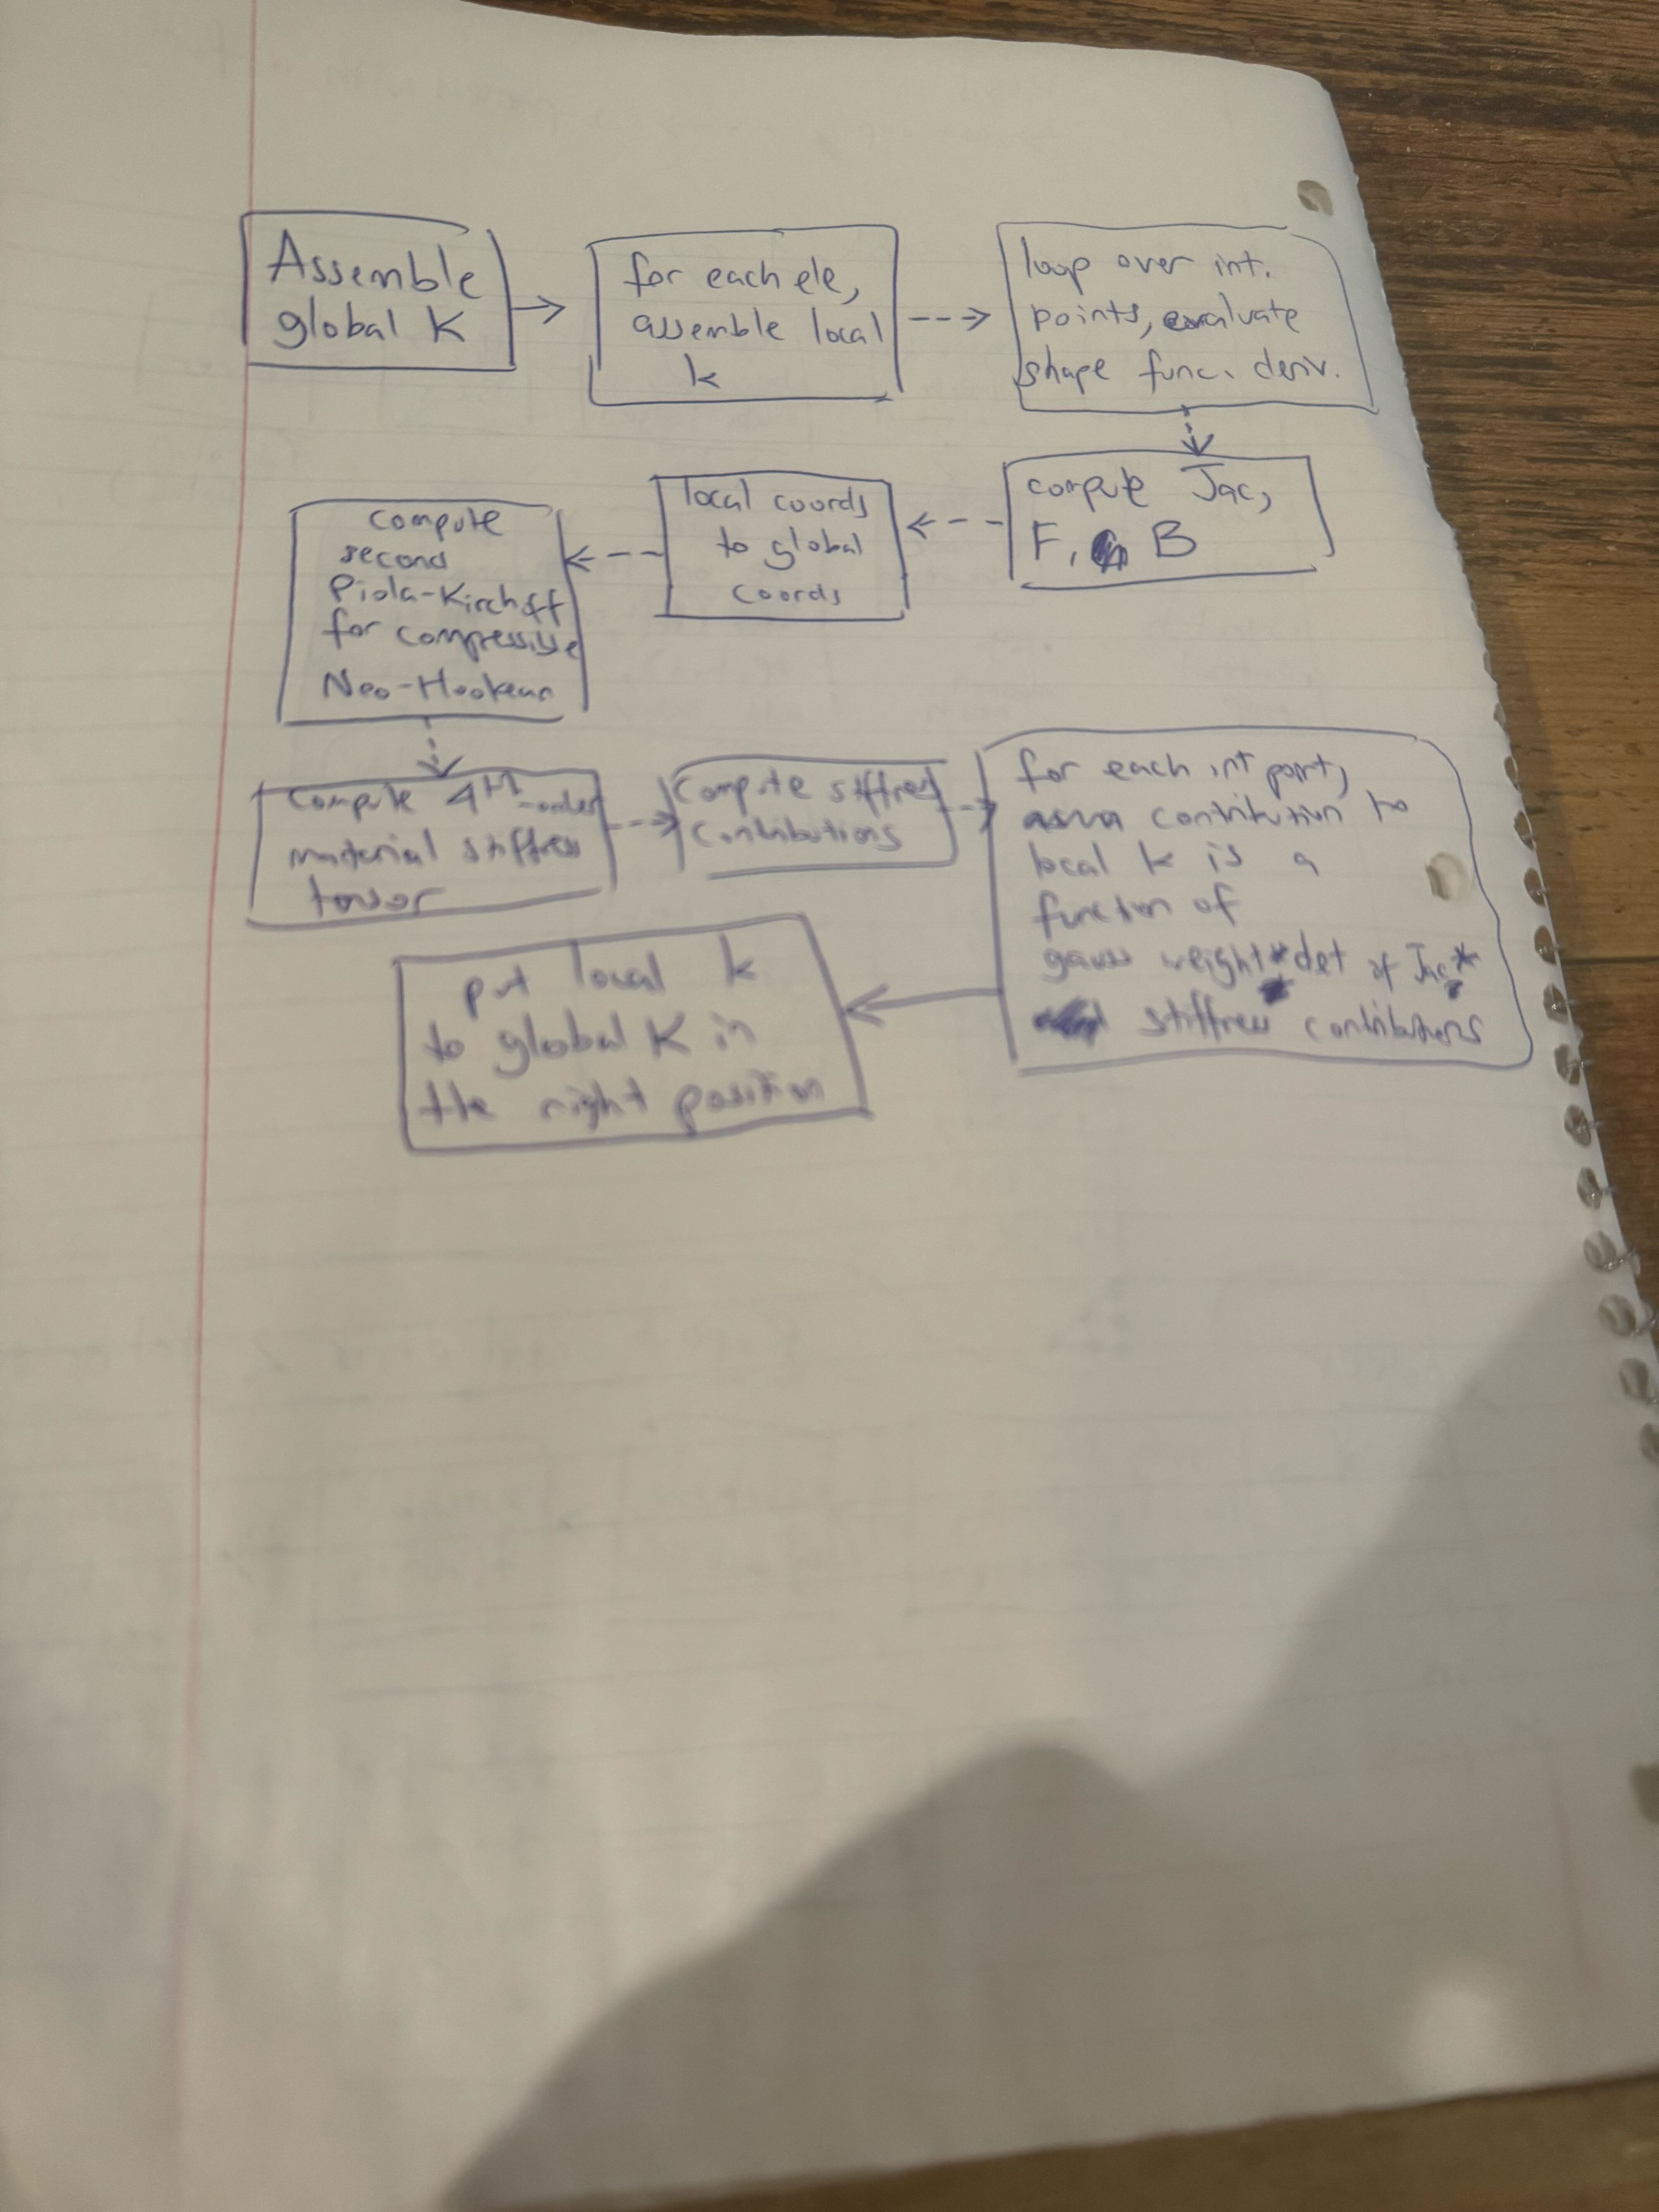 Assemble
global K
for each ele,
assemble local
k
loop over int.
points, evaluate
shape func. deriv.
compute Jac,
F, B
local coords
to global
coords
compute
second
Piola-Kirchoff
for compressible
Neo-Hookean
compute 4th-order
material stiffness
tensor
compute stiffness
contributions
for each int point,
contribution to
local k is a
function of
gauss weight * det of Jac *
stiffness contributions
put local k
to global K in
the right position